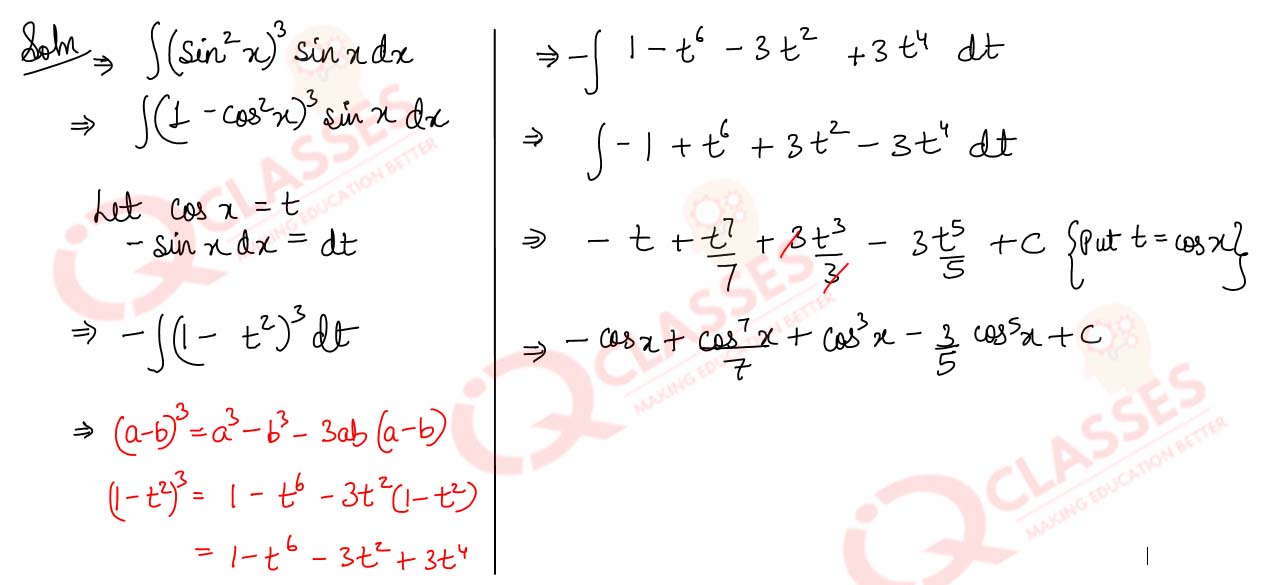 Soln ⇒ ∫(sin²x)³ sin x dx
⇒ ∫(1 - cos²x)³ sin x dx
Let cos x = t
- sin x dx = dt
⇒ -∫(1 - t²)³ dt
⇒ (a-b)³ = a³ - b³ - 3ab (a-b)
(1-t²)³ = 1 - t⁶ - 3t² (1-t²)
= 1 - t⁶ - 3t² + 3t⁴
⇒ -∫ 1 - t⁶ - 3t² + 3t⁴ dt
⇒ ∫ -1 + t⁶ + 3t² - 3t⁴ dt
⇒ - t + t⁷/7 + 3t³/3 - 3t⁵/5 + c {Put t = cos x}
⇒ - cos x + cos⁷x/7 + cos³x - 3/5 cos⁵x + c
iQ CLASSES
MAKING EDUCATION BETTER
iQ CLASSES
MAKING EDUCATION BETTER
iQ CLASSES
MAKING EDUCATION BETTER